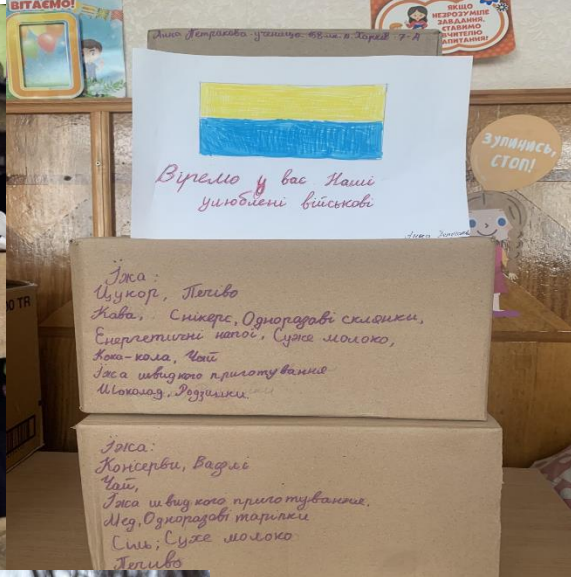 ВІТАЄМО!
ЯКЩО
НЕЗРОЗУМІЛЕ
ЗАВДАННЯ,
СТАВИМО
ВЧИТЕЛЮ
ЗАПИТАННЯ!
Анна Петракова учениця м. Харків 7-А
Віремо у вас Наші
улюблені військові
Анна
ЗУПИНИСЬ,
СТОП!
Їжа:
Цукор, Печіво
Кава, Снікерс, Одноразові склянки,
Енергетичні напої, Сухе молоко,
Кока-кола, Чай
Їжа швидкого приготування
Шоколад, Родзинки
TR
Їжа:
Консерви, Вафлі
Чай,
Їжа швидкого приготування,
Мед, Одноразові тарілки
Сіль; Сухе молоко
Печиво